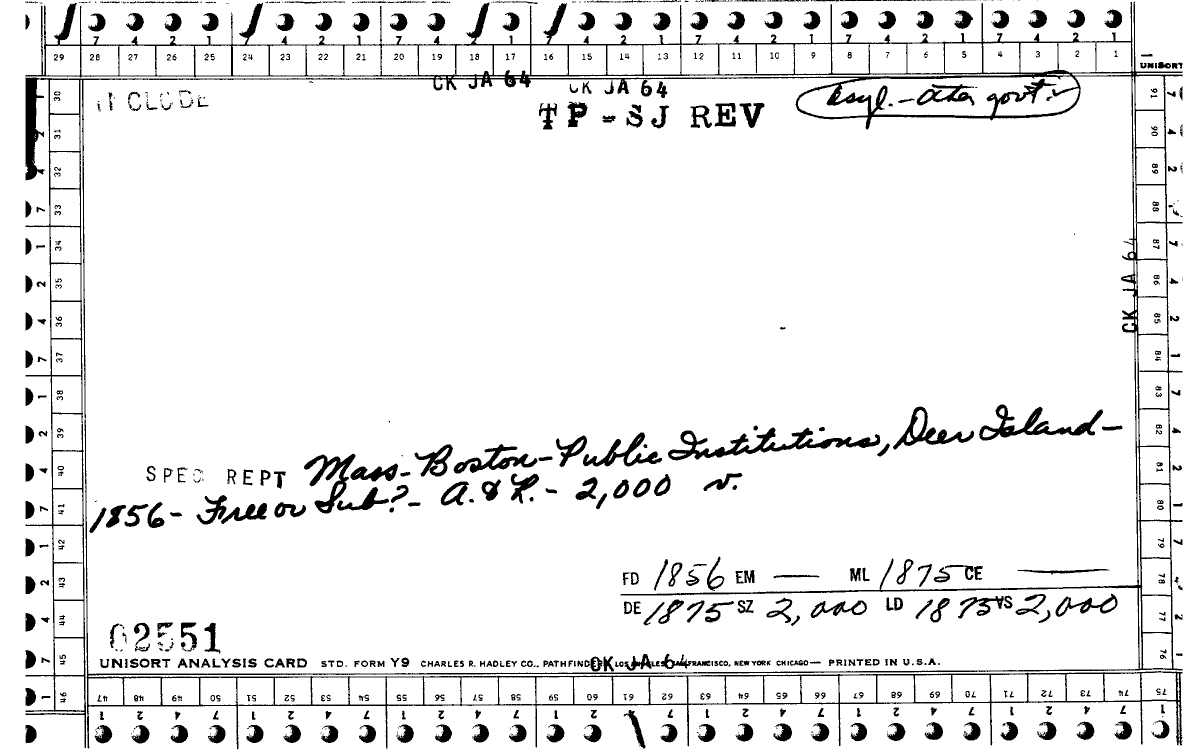 7 4 2 1 7 4 2 1 7 4 2 1 7 4 2 1 7 4 2 1 7 4 2 1 7 4 2 1
29 28 27 26 25 24 23 22 21 20 19 18 17 16 15 14 13 12 11 10 9 8 7 6 5 4 3 2 1
UNISORT
CK JA 64
CK JA 64
INCLUDE
TP-SJ REV
Asyl.-Other govt.
30 31 32 33 34 35 36 37 38 39 40 41 42 43 44 45 46
91 90 89 88 87 86 85 84 83 82 81 80 79 78 77 76
CK JA 64
SPEC REPT Mass-Boston-Public Institutions, Deer Island-
1856- Free or Sub?- A.&L.- 2,000 v.
FD 1856 EM — ML 1875 CE —
DE 1875 SZ 2,000 LD 1875 VS 2,000
02551
UNISORT ANALYSIS CARD STD. FORM Y9 CHARLES R. HADLEY CO., PATHFINDERS LOS ANGELES, SAN FRANCISCO, NEW YORK CHICAGO— PRINTED IN U.S.A.
CK JA 64
47 48 49 50 51 52 53 54 55 56 57 58 59 60 61 62 63 64 65 66 67 68 69 70 71 72 73 74 75
1 2 4 7 1 2 4 7 1 2 4 7 1 2 4 7 1 2 4 7 1 2 4 7 1 2 4 7 1